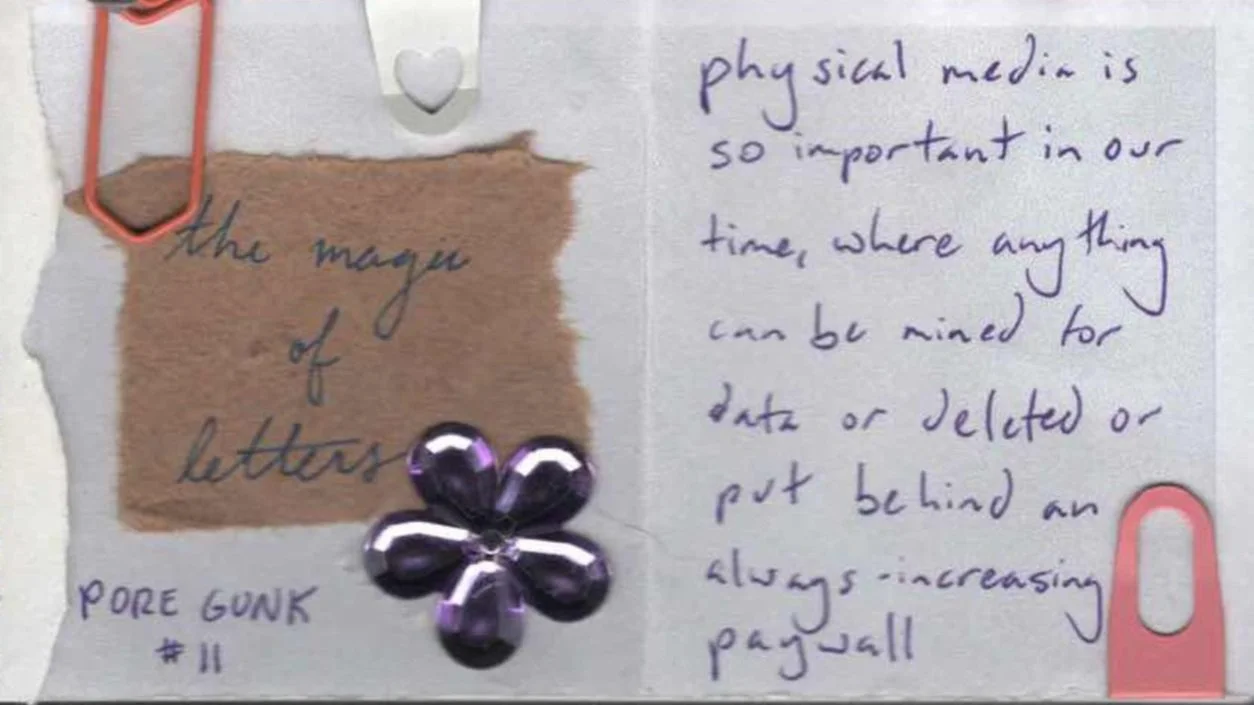 the magic
of
letters
PORE GUNK
#11
physical media is
so important in our
time, where anything
can be mined for
data or deleted or
put behind an
always-increasing
paywall